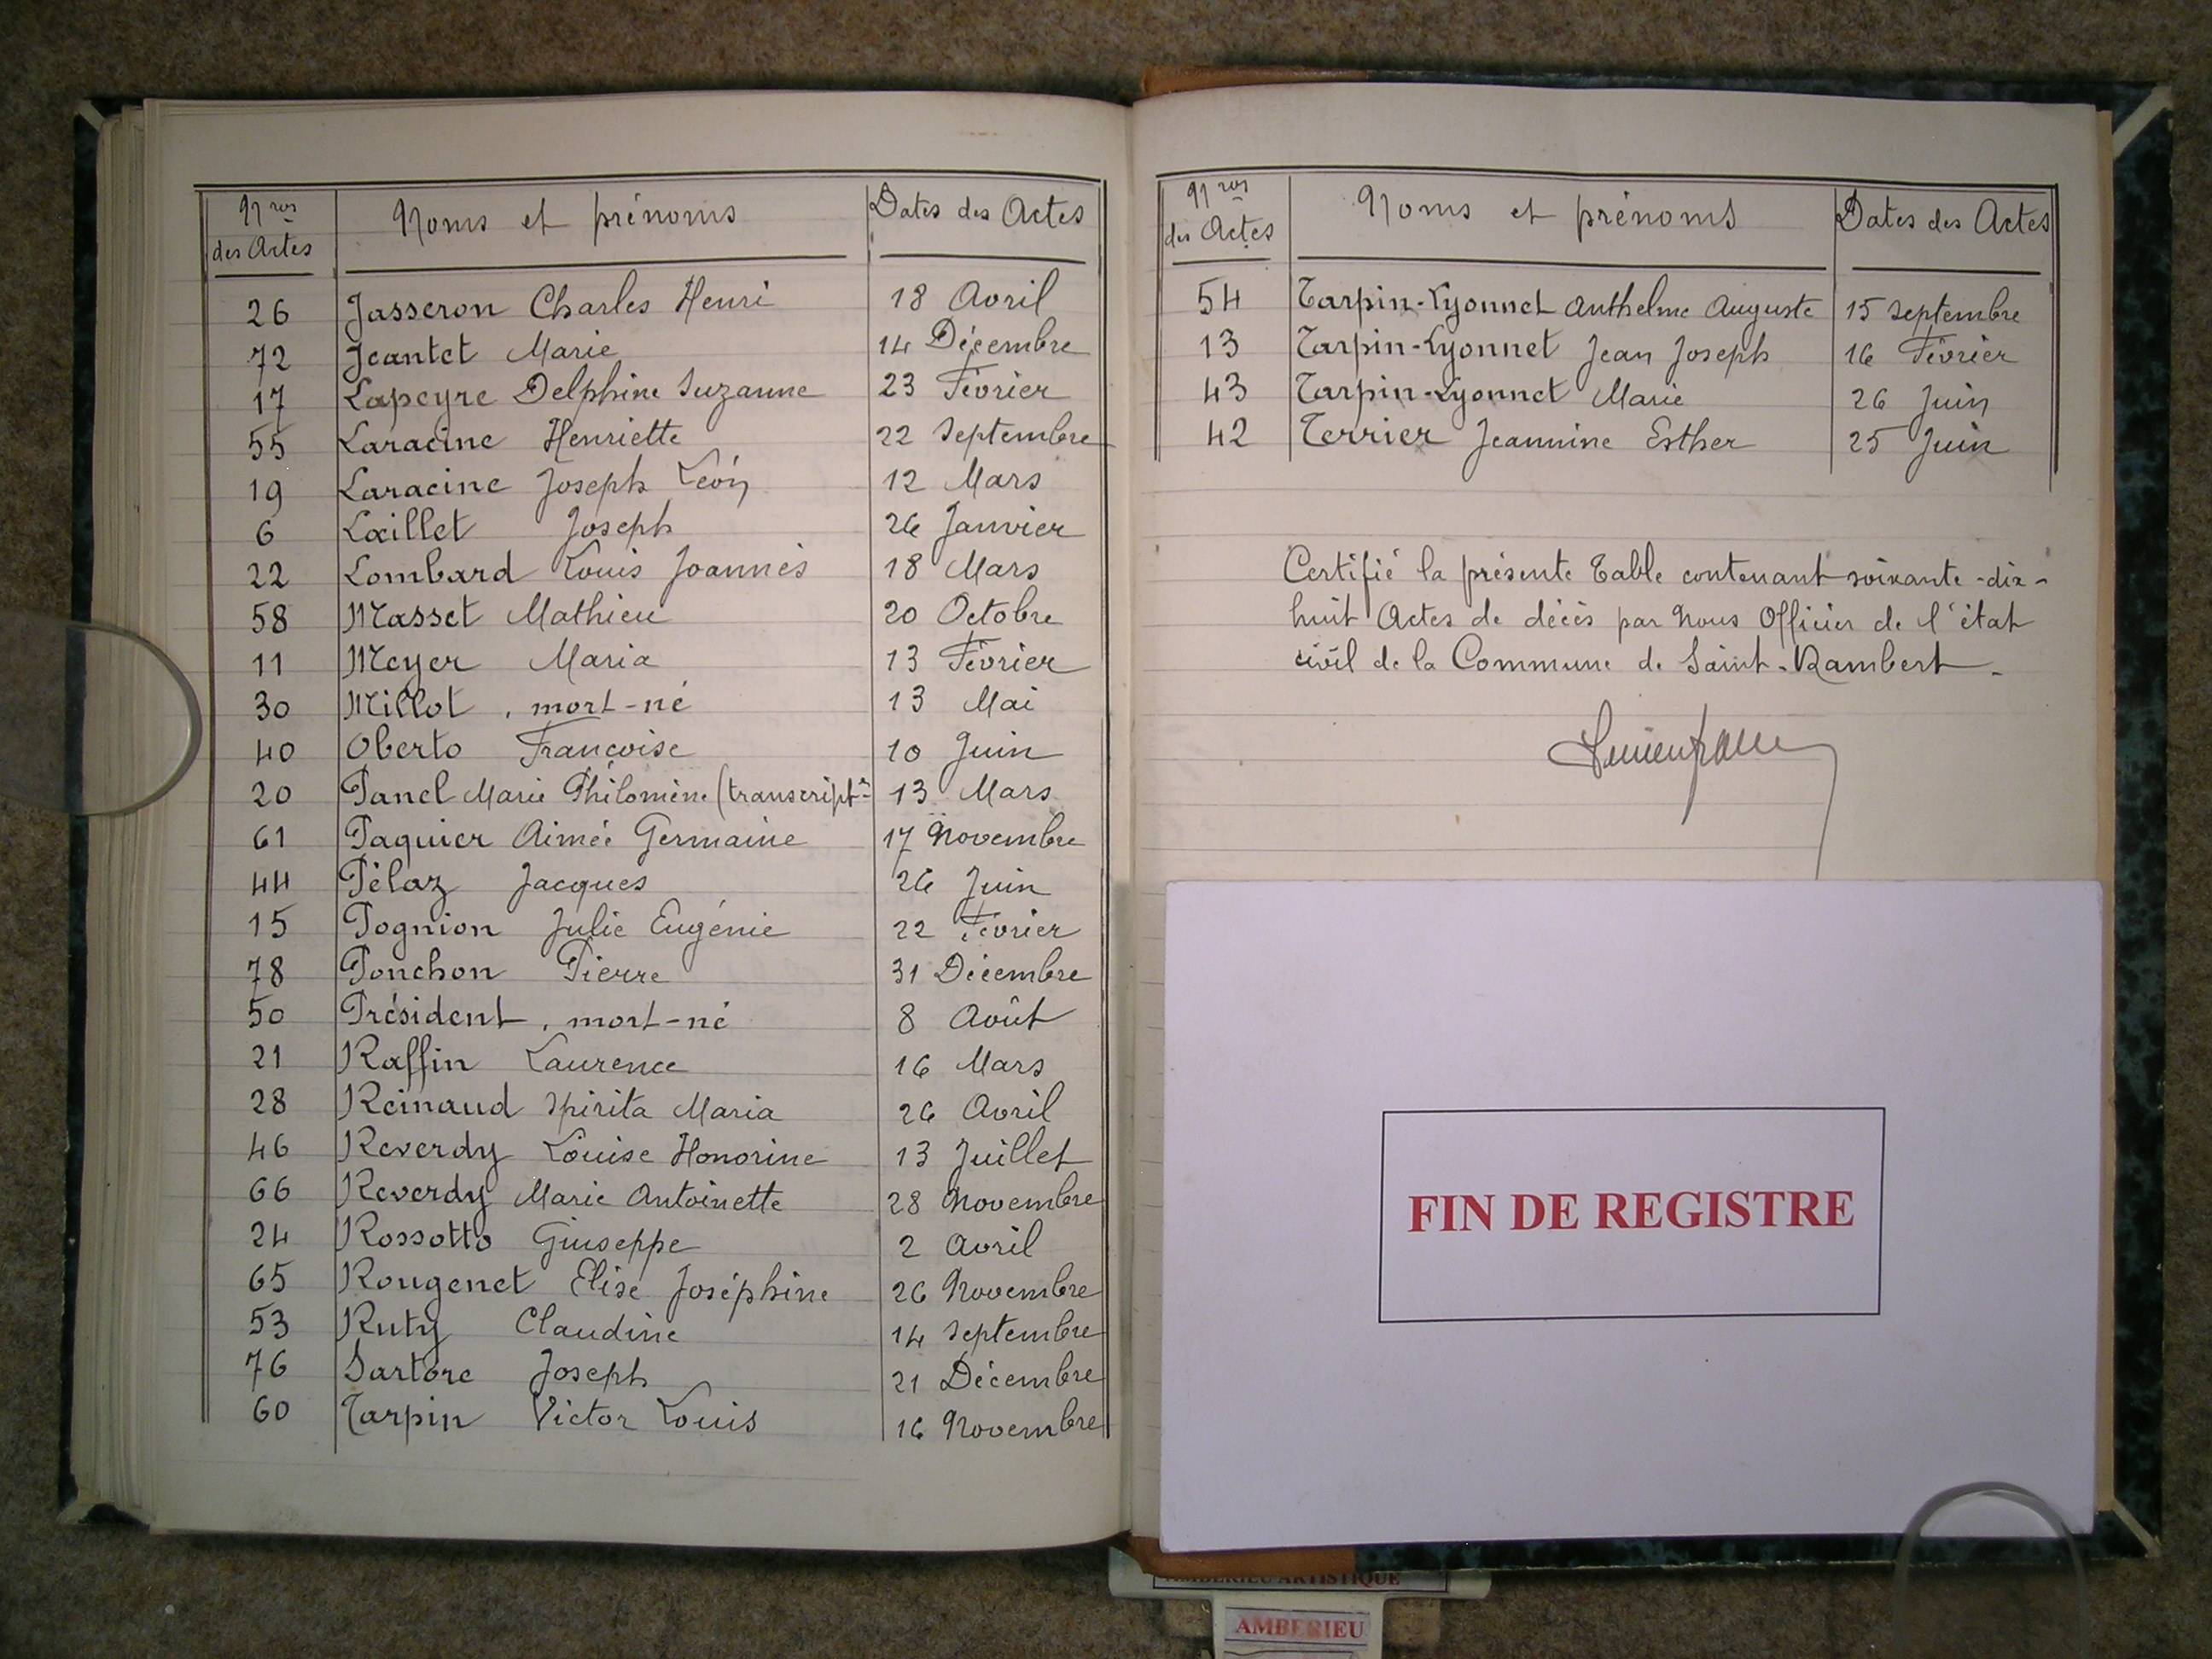 Nros des Actes Noms et prénoms Dates des Actes
26 Jasseron Charles Henri 18 Avril
72 Jeantet Marie 14 Décembre
17 Lapeyre Delphine Suzanne 23 Février
55 Laracine Henriette 22 Septembre
19 Laracine Joseph Léon 12 Mars
6 Lœillet Joseph 26 Janvier
22 Lombard Louis Joannès 18 Mars
58 Masset Mathieu 20 Octobre
11 Meyer Maria 13 Février
30 Millot, mort-né 13 Mai
40 Oberto Françoise 10 Juin
20 Panel Marie Philomène (transcriptn 13 Mars
61 Paquier Aimée Germaine 17 Novembre
44 Pélaz Jacques 26 Juin
15 Pognion Julie Eugénie 22 Février
78 Ponchon Pierre 31 Décembre
50 Président, mort-né 8 Août
21 Raffin Laurence 16 Mars
28 Reinaud Spirita Maria 26 Avril
46 Reverdy Louise Honorine 13 Juillet
66 Reverdy Marie Antoinette 28 Novembre
24 Rossotto Giuseppe 2 Avril
65 Rougenet Elise Joséphine 26 Novembre
53 Ruty Claudine 14 Septembre
76 Sartore Joseph 21 Décembre
60 Tarpin Victor Louis 16 Novembre
Nros des Actes Noms et prénoms Dates des Actes
54 Tarpin-Lyonnet Anthelme Auguste 15 Septembre
13 Tarpin-Lyonnet Jean Joseph 16 Février
43 Tarpin-Lyonnet Marie 26 Juin
42 Terrier Jeannine Esther 25 Juin
Certifié la présente Table contenant soixante-dix-
huit Actes de décès par Nous Officier de l'état
civil de la Commune de Saint-Rambert.
FIN DE REGISTRE
AMBERIEU ARTISTIQUE
AMBERIEU